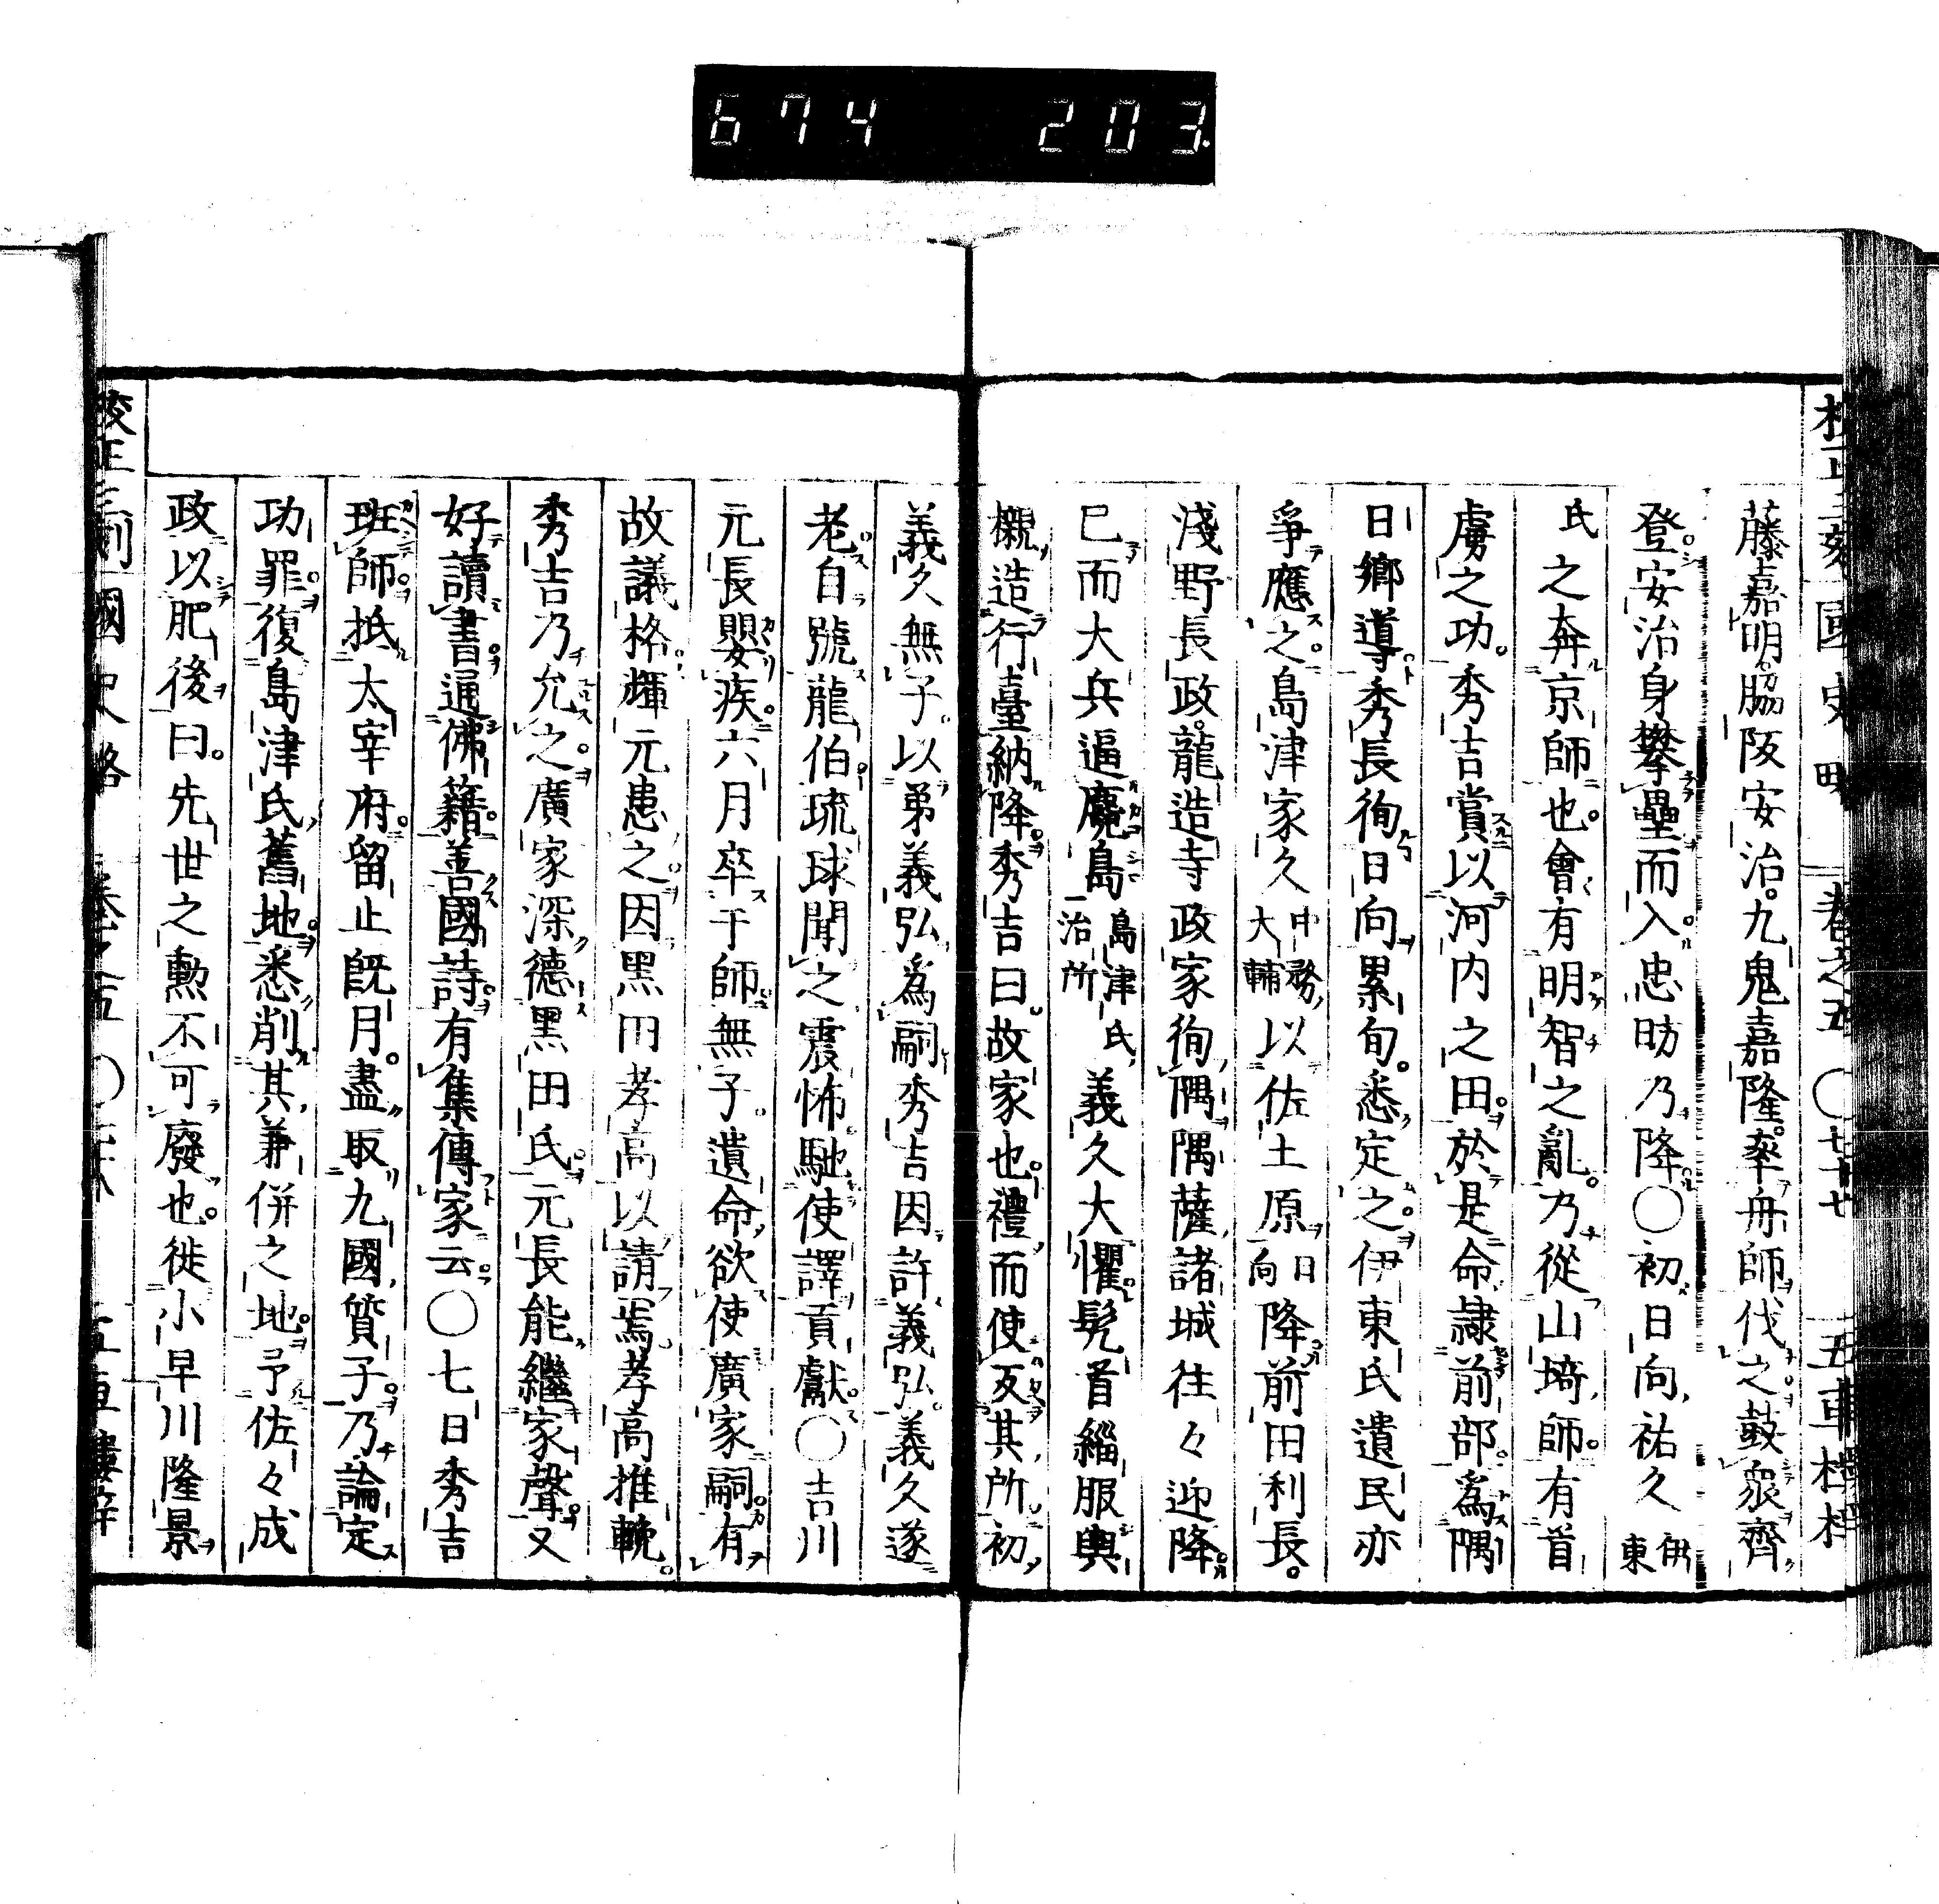 674 203
國史略 卷之五 〇七十七 五車樓梓
藤嘉明。脇阪安治。九鬼嘉隆。率舟師伐之鼓衆齊
登。安治身攀壘而入。忠昉乃降〇初日向祐久伊東
氏之奔京師也。會有明智之亂。乃從山埼師。有首
虜之功。秀吉賞以河内之田。於是命隷前部。爲隅
日鄉導。秀長徇日向累旬。悉定之。伊東氏遺民亦
爭應之。島津家久中務大輔以佐土原日向降。前田利長。
淺野長政。龍造寺政家徇隅。隅薩諸城往々迎降。
已而大兵逼麑島島津氏治所義久大懼髡首緇服輿
櫬造行臺納降。秀吉曰。故家也。禮而使反其所。初
義久無子。以弟義弘爲嗣。秀吉因許義弘。義久遂
老。自號龍伯。琉球聞之震怖馳使譯貢獻。〇吉川
元長嬰疾。六月卒于師。無子。遺命欲使廣家嗣。有
故議格。輝元患之。因黑田孝高以請焉。孝高推輓。
秀吉乃允之。廣家深德黑田氏。元長能繼家聲。又
好讀書。通佛籍。善國詩。有集傳家云〇七日秀吉
班師。抵太宰府。留止旣月。盡取九國質子。乃論定
功罪。復島津氏舊地。悉削其兼併之地。予佐々成
政以肥後曰。先世之勲不可廢也。徙小早川隆景
校正三刻國史略 卷之五 〇 五車樓梓